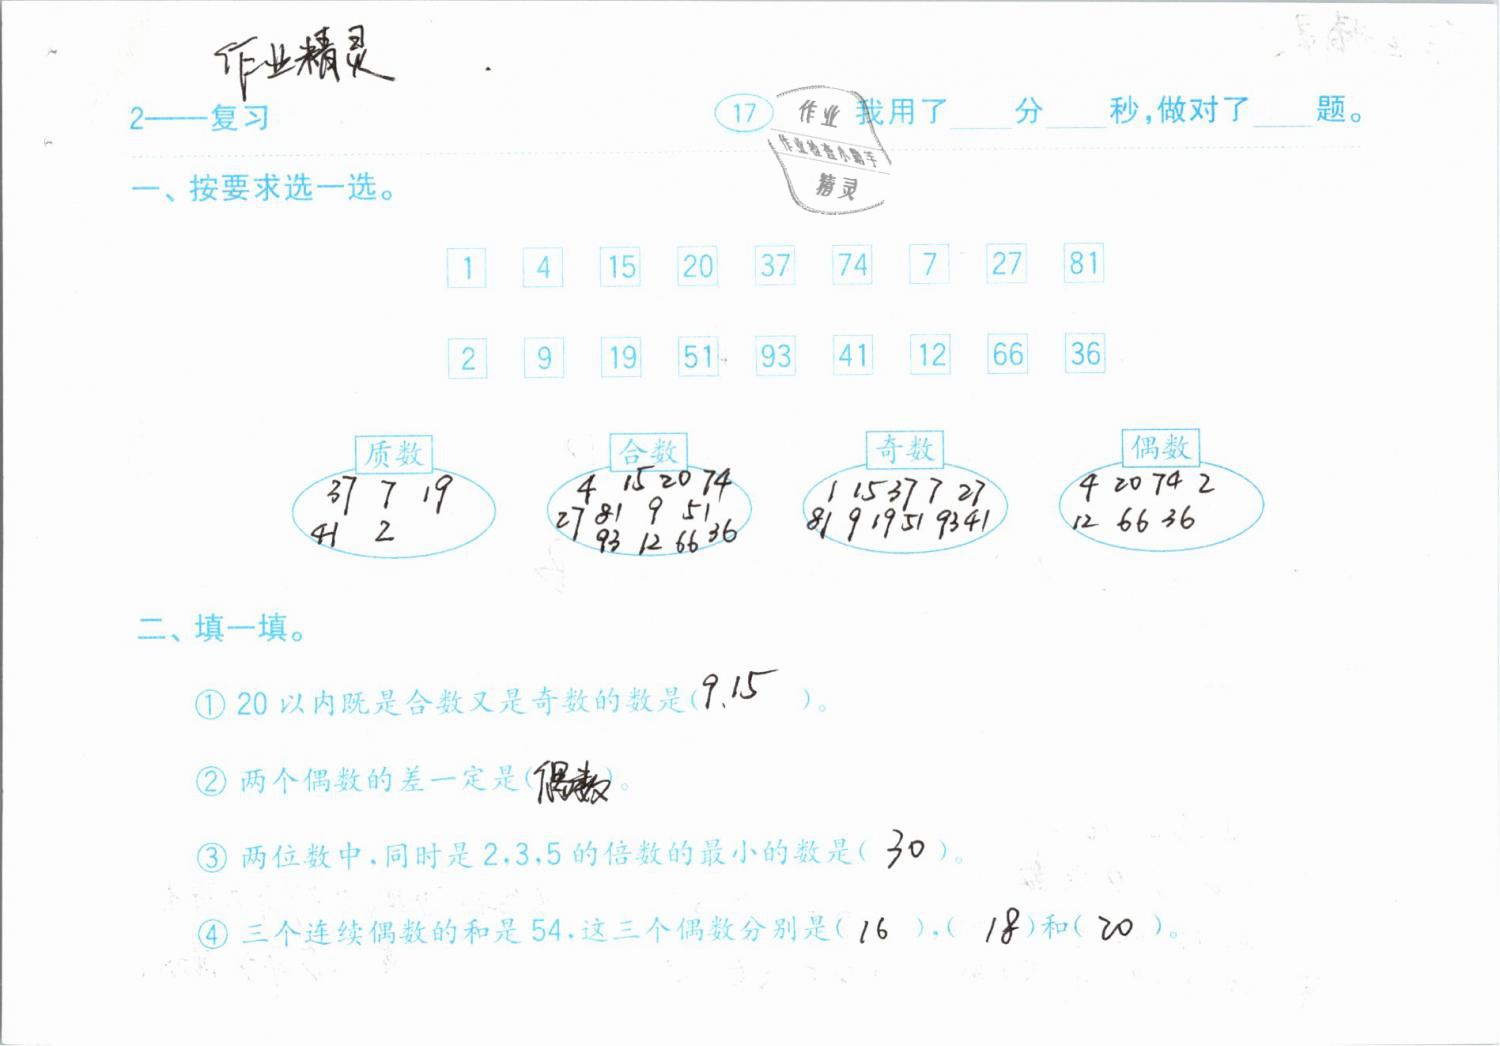 作业精灵
2——复习 17 我用了 分 秒,做对了 题。
作业
作业检查小助手
精灵
一、按要求选一选。
1 4 15 20 37 74 7 27 81
2 9 19 51 93 41 12 66 36
质数 合数 奇数 偶数
37 7 19 4 15 20 74 1 15 37 7 27 4 20 74 2
41 2 27 81 9 51 81 9 19 51 93 41 12 66 36
93 12 66 36
二、填一填。
① 20以内既是合数又是奇数的数是(9、15)。
② 两个偶数的差一定是(偶数)。
③ 两位数中,同时是2,3,5的倍数的最小的数是(30)。
④ 三个连续偶数的和是54,这三个偶数分别是(16),(18)和(20)。